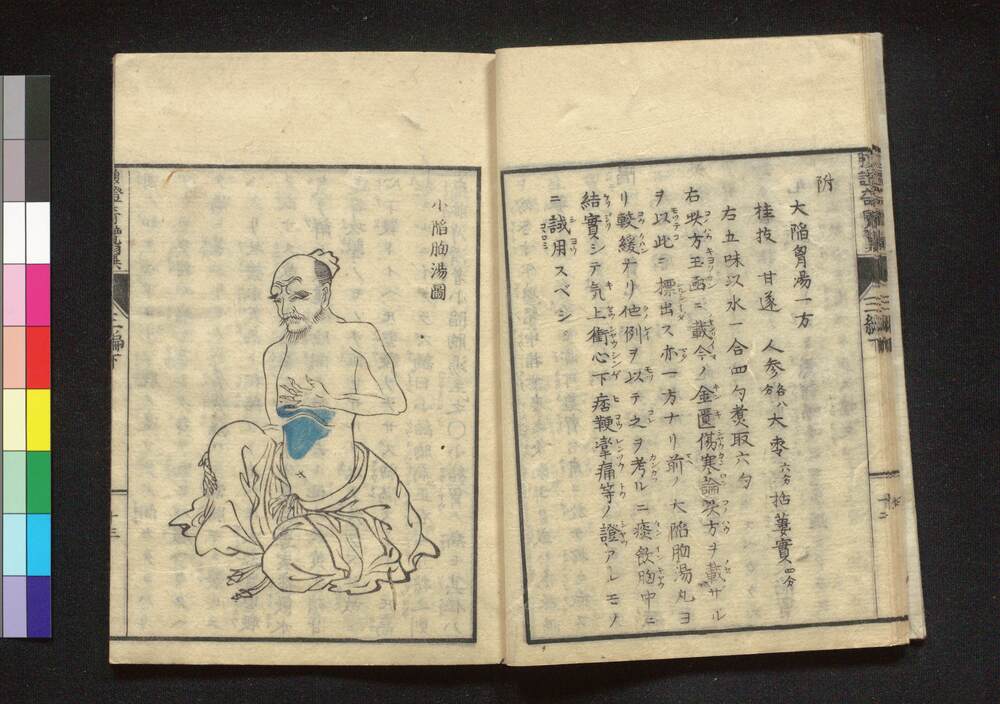 附
大陥胷湯一方
桂技 甘遂 人参各八分 大枣六分 括蔞實四分
右五味以水一合四勺煑取六勺
右此方玉函ニ載今ノ金匱傷寒論此方ヲ載ザル
ヲ以此ニ標出ス亦一方ナリ前ノ大陥胸湯丸ヨ
リ較緩ナリ他例ヲ以テ之ヲ考ルニ痰飲胸中ニ
結實シテ気上衝心下痞鞕攣痛等ノ證アレモノ
ニ試用スベシ
小陥胸湯圖